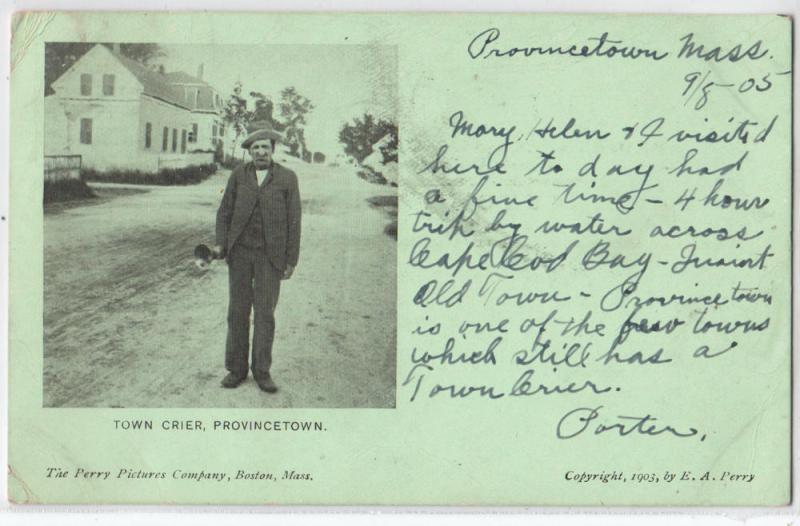 Provincetown Mass.
9/8-05
Mary, Helen & I visited
here to day had
a fine time - 4 hour
trip by water across
Cape Cod Bay - Quaint
Old Town - Provincetown
is one of the few towns
which still has a
Town Crier.
Porter.
TOWN CRIER, PROVINCETOWN.
The Perry Pictures Company, Boston, Mass.
Copyright, 1903, by E. A. Perry